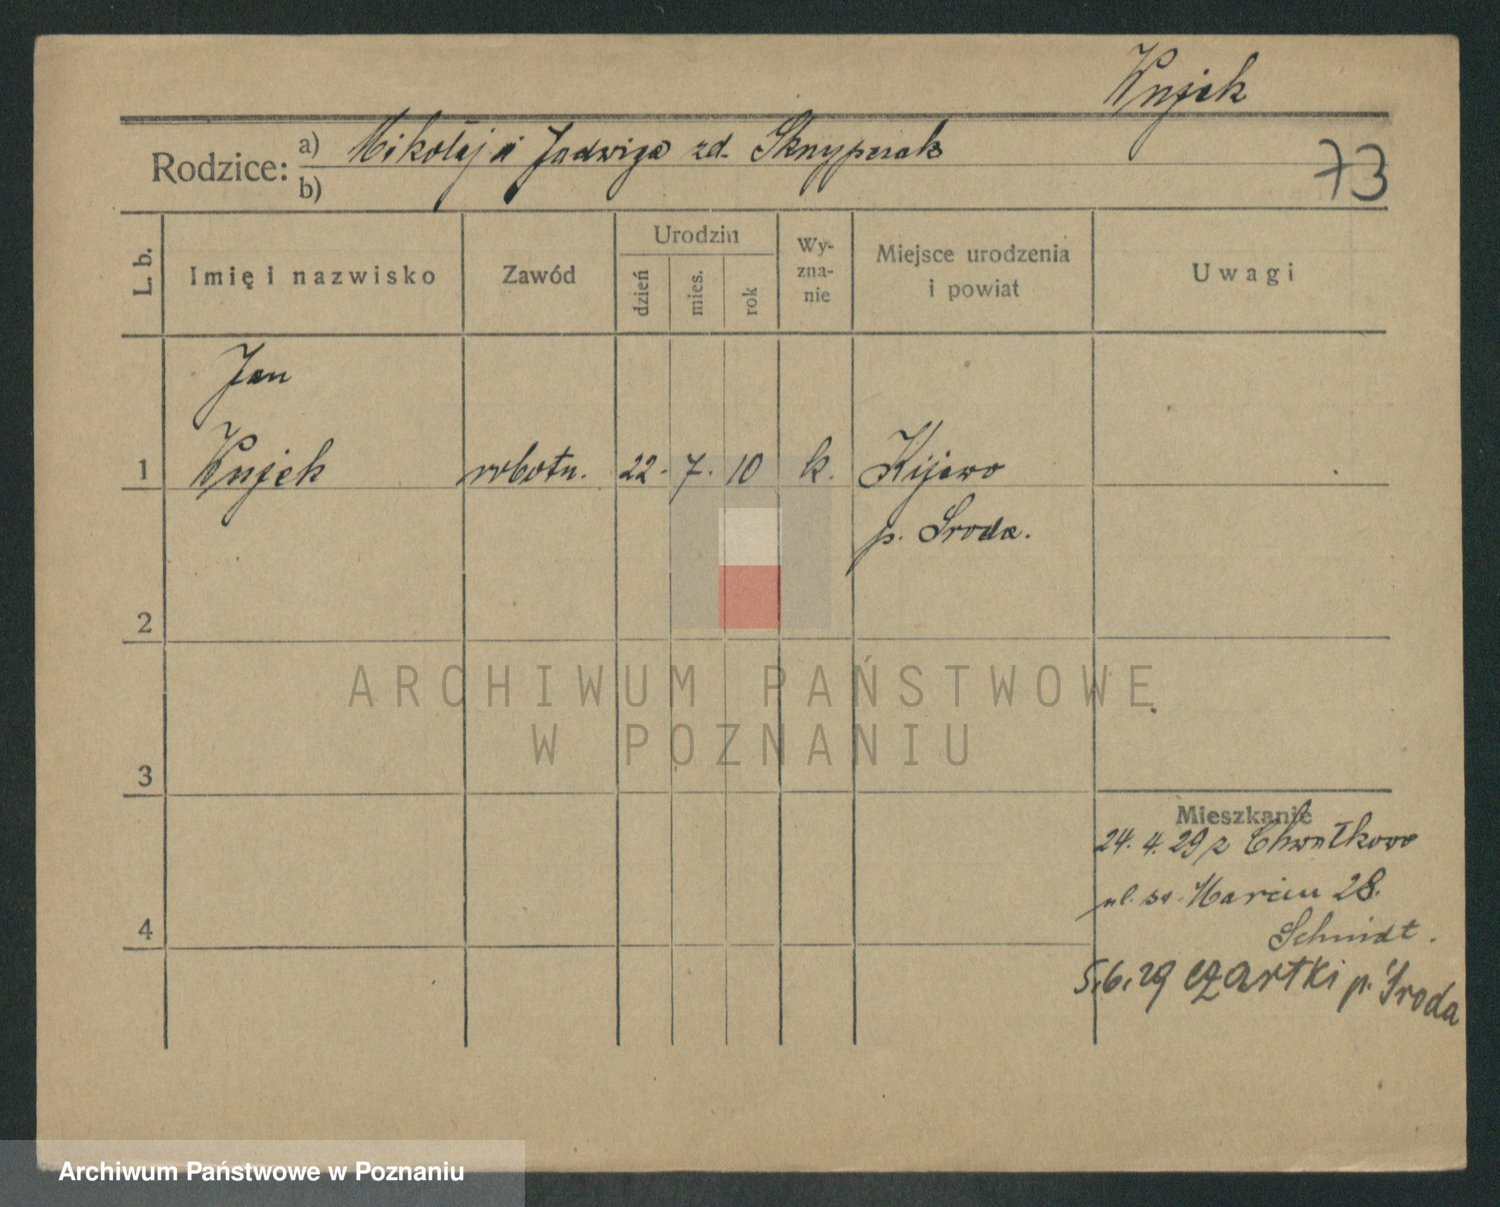 Wujek
Rodzice: a) Mikołaj i Jadwiga zd. Sknyperak
b)
73
L. b.
Imię i nazwisko
Zawód
Urodzin
dzień
mies.
rok
Wy-
zna-
nie
Miejsce urodzenia
i powiat
Uwagi
Jan
1 Wujek robotn. 22. 7. 10 k. Kijewo
p. Sroda.
2
ARCHIWUM PAŃSTWOWE
W POZNANIU
3
Mieszkanie
24. 4. 29 z Chwałkowo
ul. sw. Marcin 28.
4
Schmidt.
5.6.29 czartki p. Środa
Archiwum Państwowe w Poznaniu